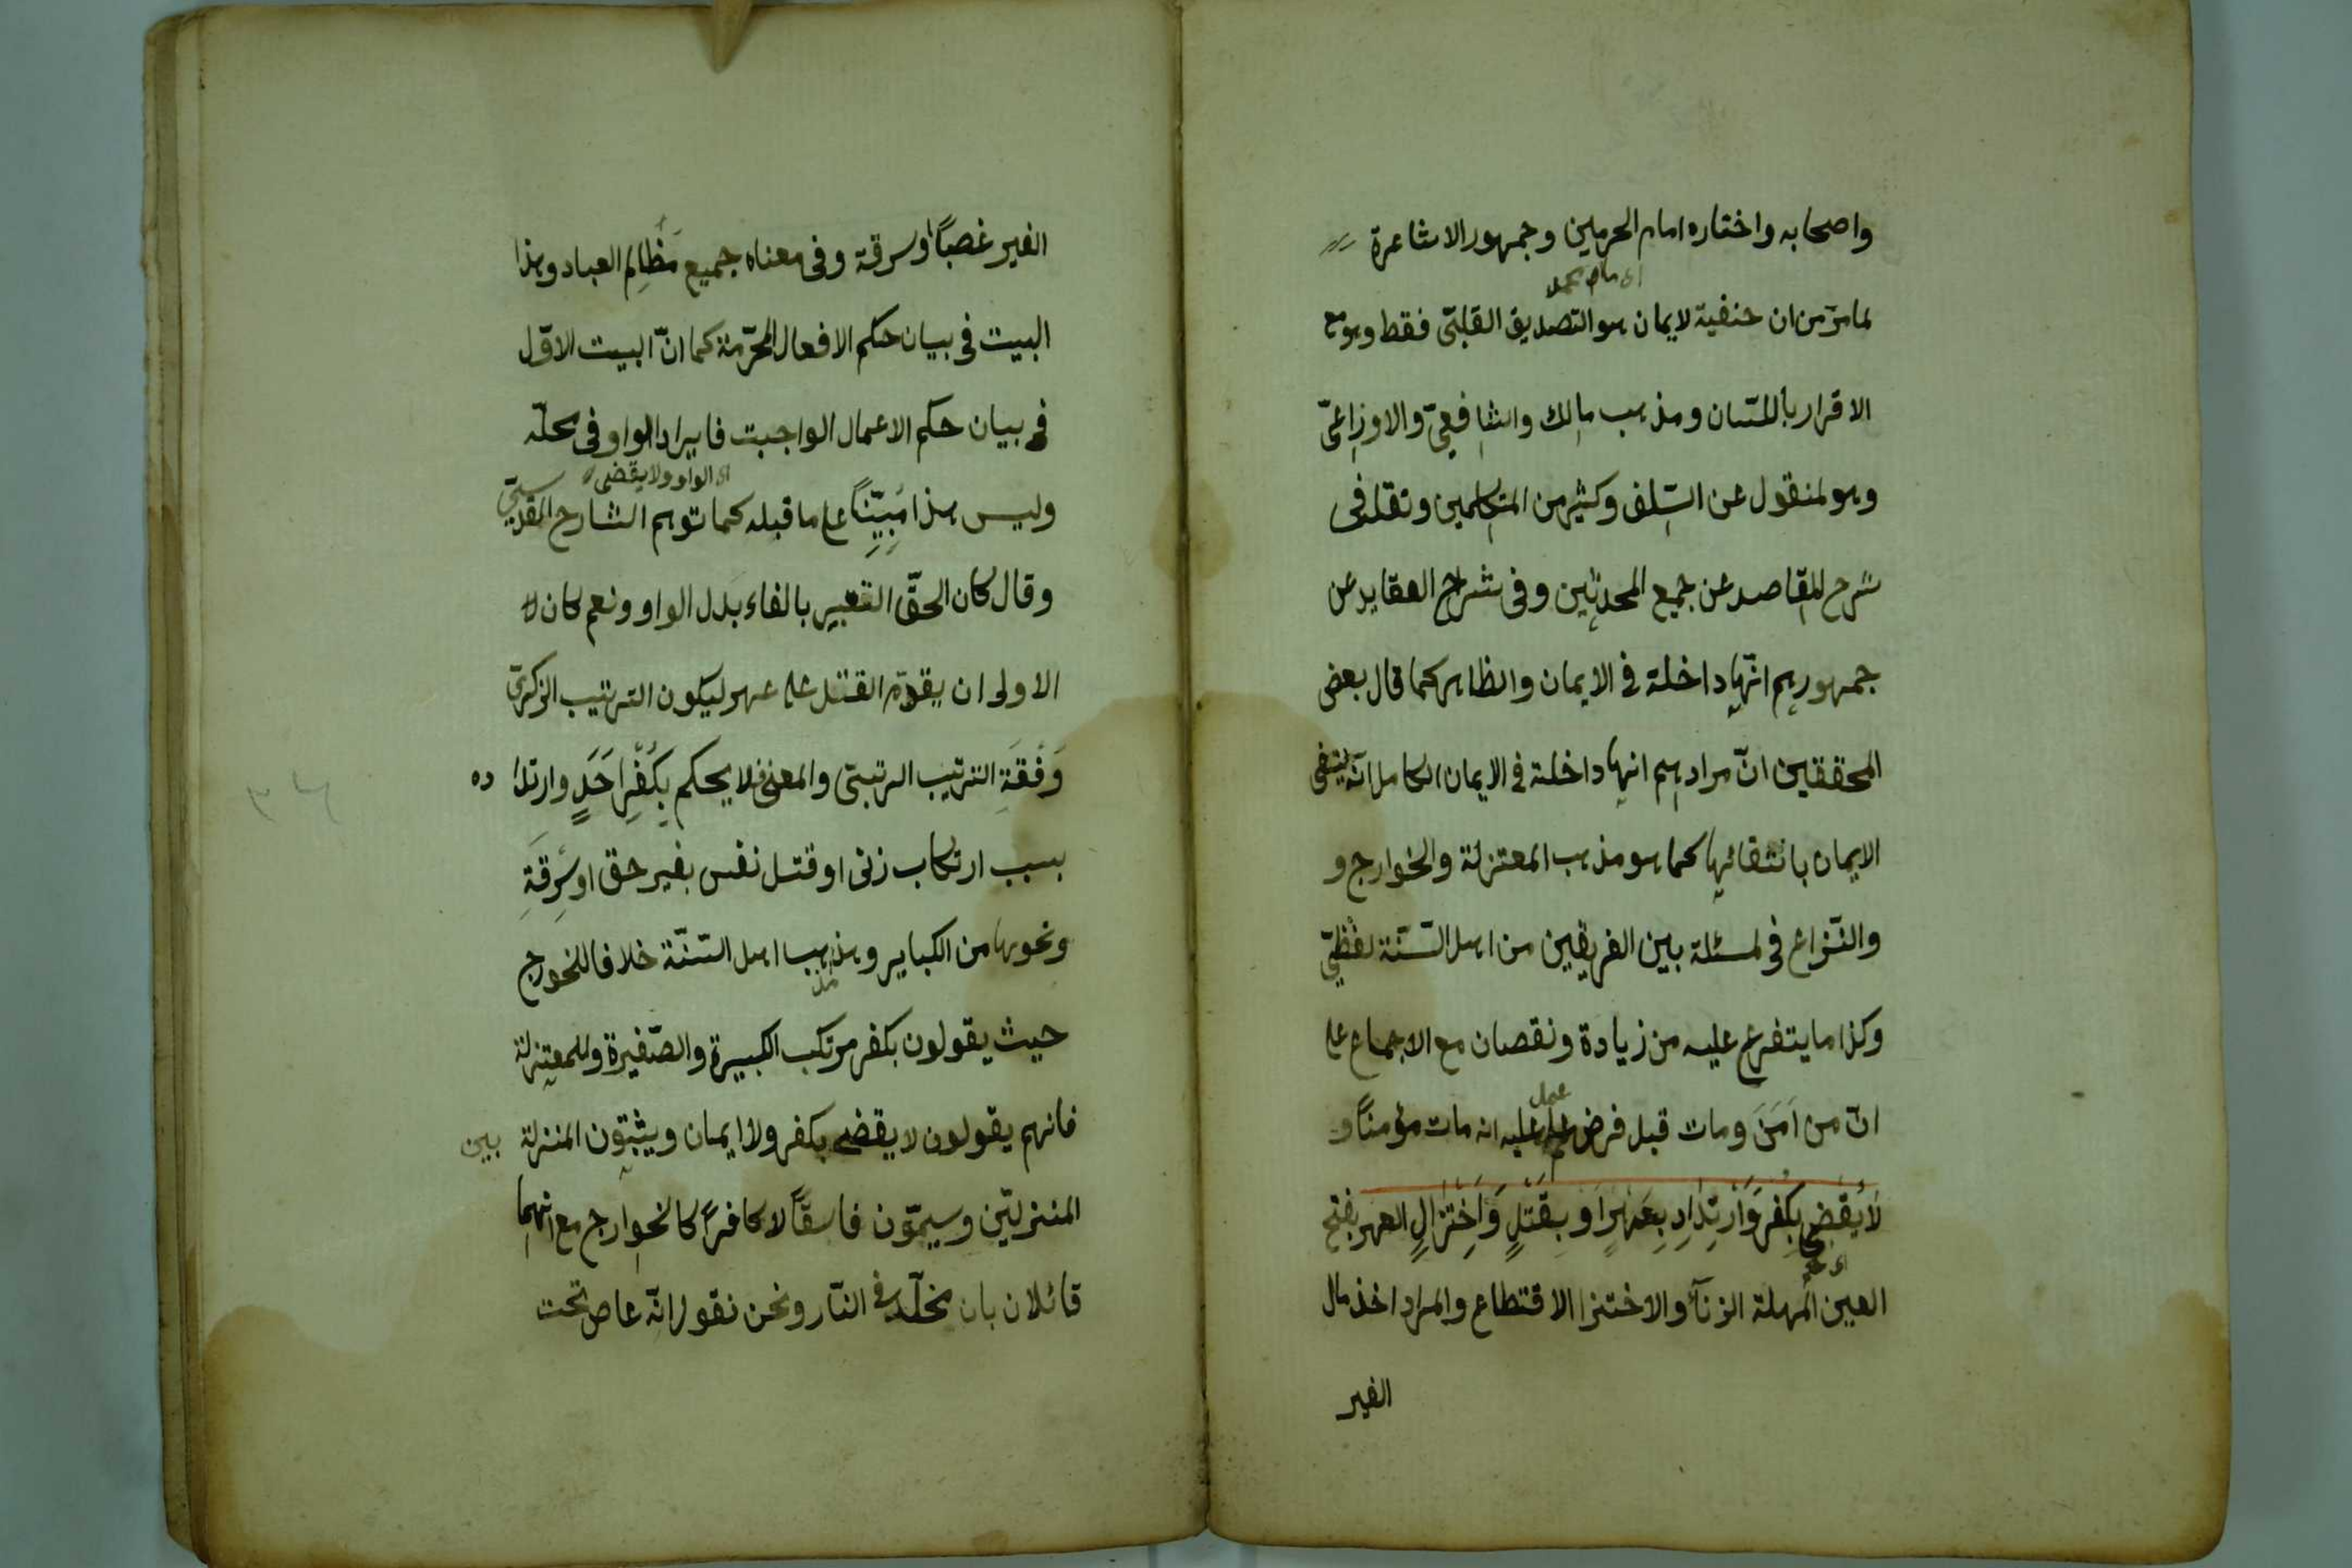 واصحابه واختاره امام الحرمين وجمهور الاشاعرة
لما مرّ من ان حنفية لايمان هو التصديق القلبىّ فقط وهو مع
الاقرار باللسّان ومذهب مالك والشافعىّ والاوزاعىّ
وهو لمنقول عن السّلف وكثير من المتكلمين وتقل فى
شرح المقاصد عن جميع المحدثين وفى شراح العقايد عن
جمهورهم انّها داخلة فى الايمان والظاهر كما قال بعض
المحققين انّ مرادهم انها داخلة فى الايمان الكامل انّه ينتفى
الايمان بانتقائها كما هو مذهب المعتزلة والخوارج و
والنّزاع فى لمسئلة بين الفريقين من اهل السّنّة لفظىّ
وكذا ما يتفرع عليه من زيادة ونقصان مع الاجماع على
انّ من اَمَنَ ومات قبل فرض عمل عليه انه مات مؤمنًا و
لَا يُقْضٰى بِكُفْرٍ وَارْتِدَادٍ بِعَهْرٍ اَو بِقَتْلٍ وَاخْتِزَالٍ العهر بفتح
العين المهملة الزنآء والاختزا الاقتطاع والمراد اخذ مال
الغير
الغير غصبًا اوسرقة وفى معناه جميع مَظَالِم العباد وهذا
البيت فى بيان حكم الافعال المحرّمة كما انّ البيت الاوّل
فى بيان حكم الاعمال الواجبت فايراد الواو فى محلّه
اى الواو ولا يقضى
وليس هذا مُبِيّنًا على ما قبله كما توهم الشارح المقدسىّ
وقال كان الحقّ التعبير بالفاء بَدل الواو ونعم كان
الاولى ان يقدّم القتل على عهر ليكون الترتيب الذكرىّ
وَفْقَةِ الترتيب الرتبتى والمعنى فلا يحكم بِكُفْرِ اَحَدٍ وارتدا ده
بسبب ارتكاب زنى او قتل نفس بغير حق او سَرِقَةِ
ونحوها من الكباير وهذهب اهل السّنّة خلافا للخورج
حيث يقولون بكفر مرتكب الكبيرة والصّغيرة وللمعتزلة
فانهم يقولون لا يقضى بكفر ولا ايمان ويثبتون المنزلة بين
المنزلتين وسيمّون فاسقًا لا كافرًا كالخوارج مع انهما
قائلان بان يخلّد فى النّار ونحن نقول انّه عاص تحت